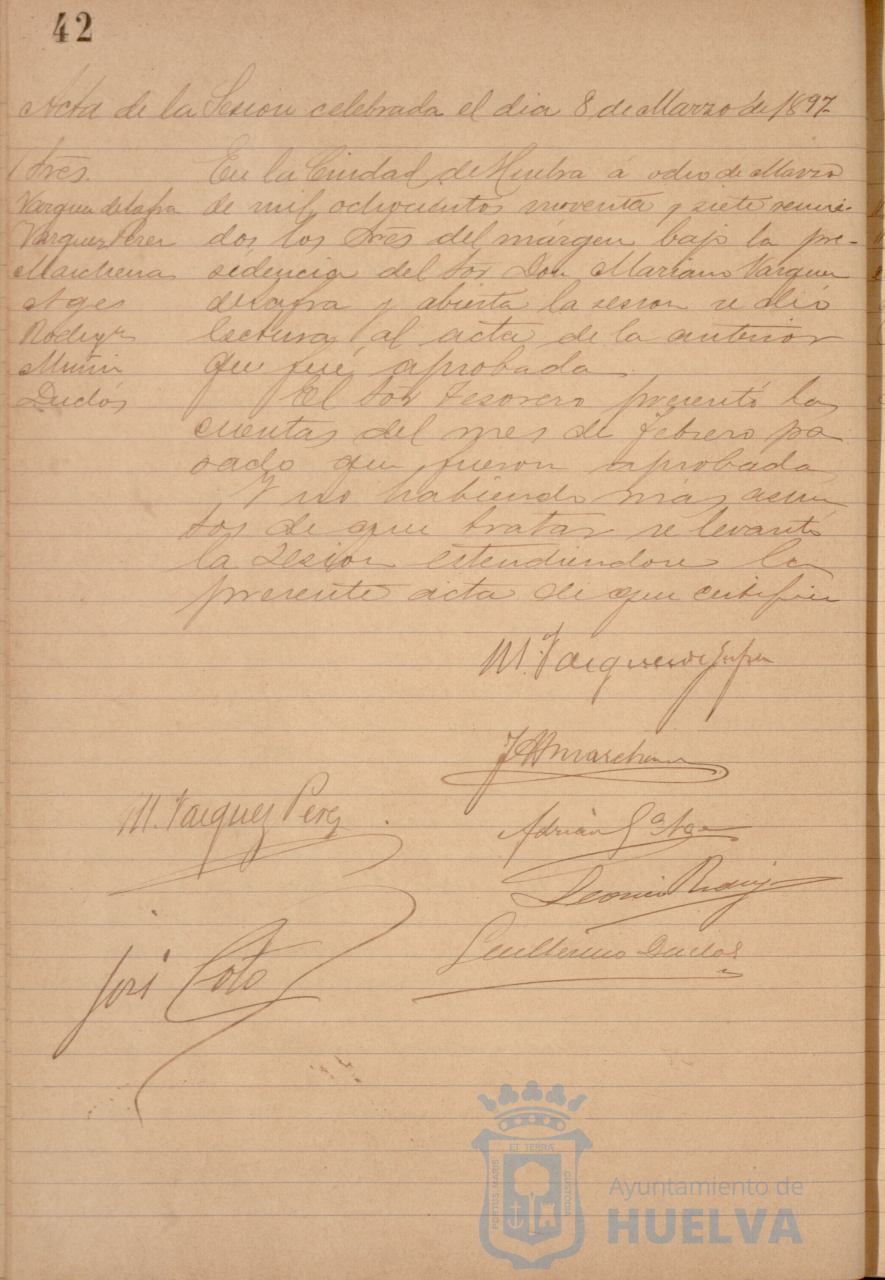 42
Acta de la Sesion celebrada el dia 8 de Marzo de 1897
Sres.
Vazquez de Zafra
Vazquez Perez
Marchena
Age
Rodrigz
Duclós
En la Ciudad de Huelva á ocho de Marzo
de mil ochocientos noventa y siete reuni-
dos los Sres del márgen bajo la pre-
sidencia del Sor Don Mariano Vazquez
de Zafra y abierta la sesion se dió
lectura al acta de la anterior
que fué aprobada.
El Sor Tesorero presentó las
cuentas del mes de febrero pa
sado que fueron aprobadas
Y no habiendo mas asun
tos de que tratar se levantó
la Sesion estendiendose la
presente acta de que certifico
M. Vazquez de Zafra
Marchena
M. Vazquez Perez
Adrian Ga Age
Leoncio Rodrig
José Coto
Guillermo Duclos
ET TERRÆ
PORTUS MARIS
CUSTODIA
Ayuntamiento de
HUELVA